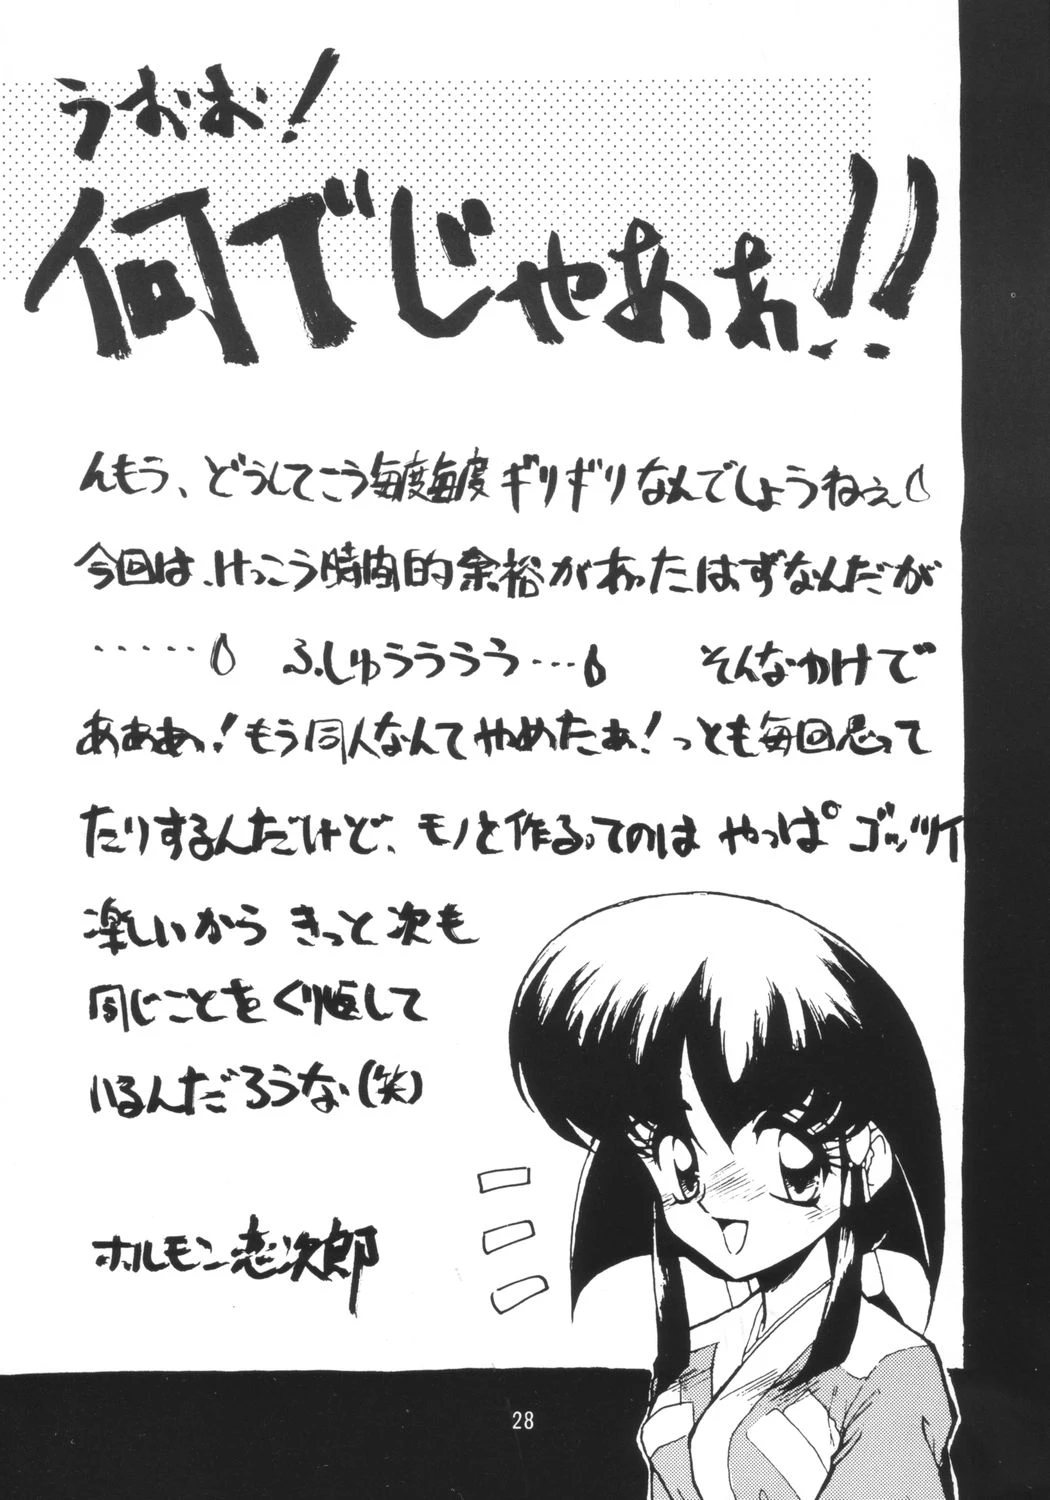 うおお!
何でじゃあぁ!!
んもう、どうしてこう毎度毎度ギリギリなんでしょうねぇ
今回は、けっこう時間的余裕があったはずなんだが
‥‥‥ ふしゅうううう… そんなわけで
あぁあぁ!もう同人なんてやめたぁ!っとも毎回思って
たりするんだけど、モノと作るってのは やっぱ゜ゴッツイ
楽しいから きっと次も
同じことをくり返して
いるんだろうな(笑)
ホルモン恋次郎
28